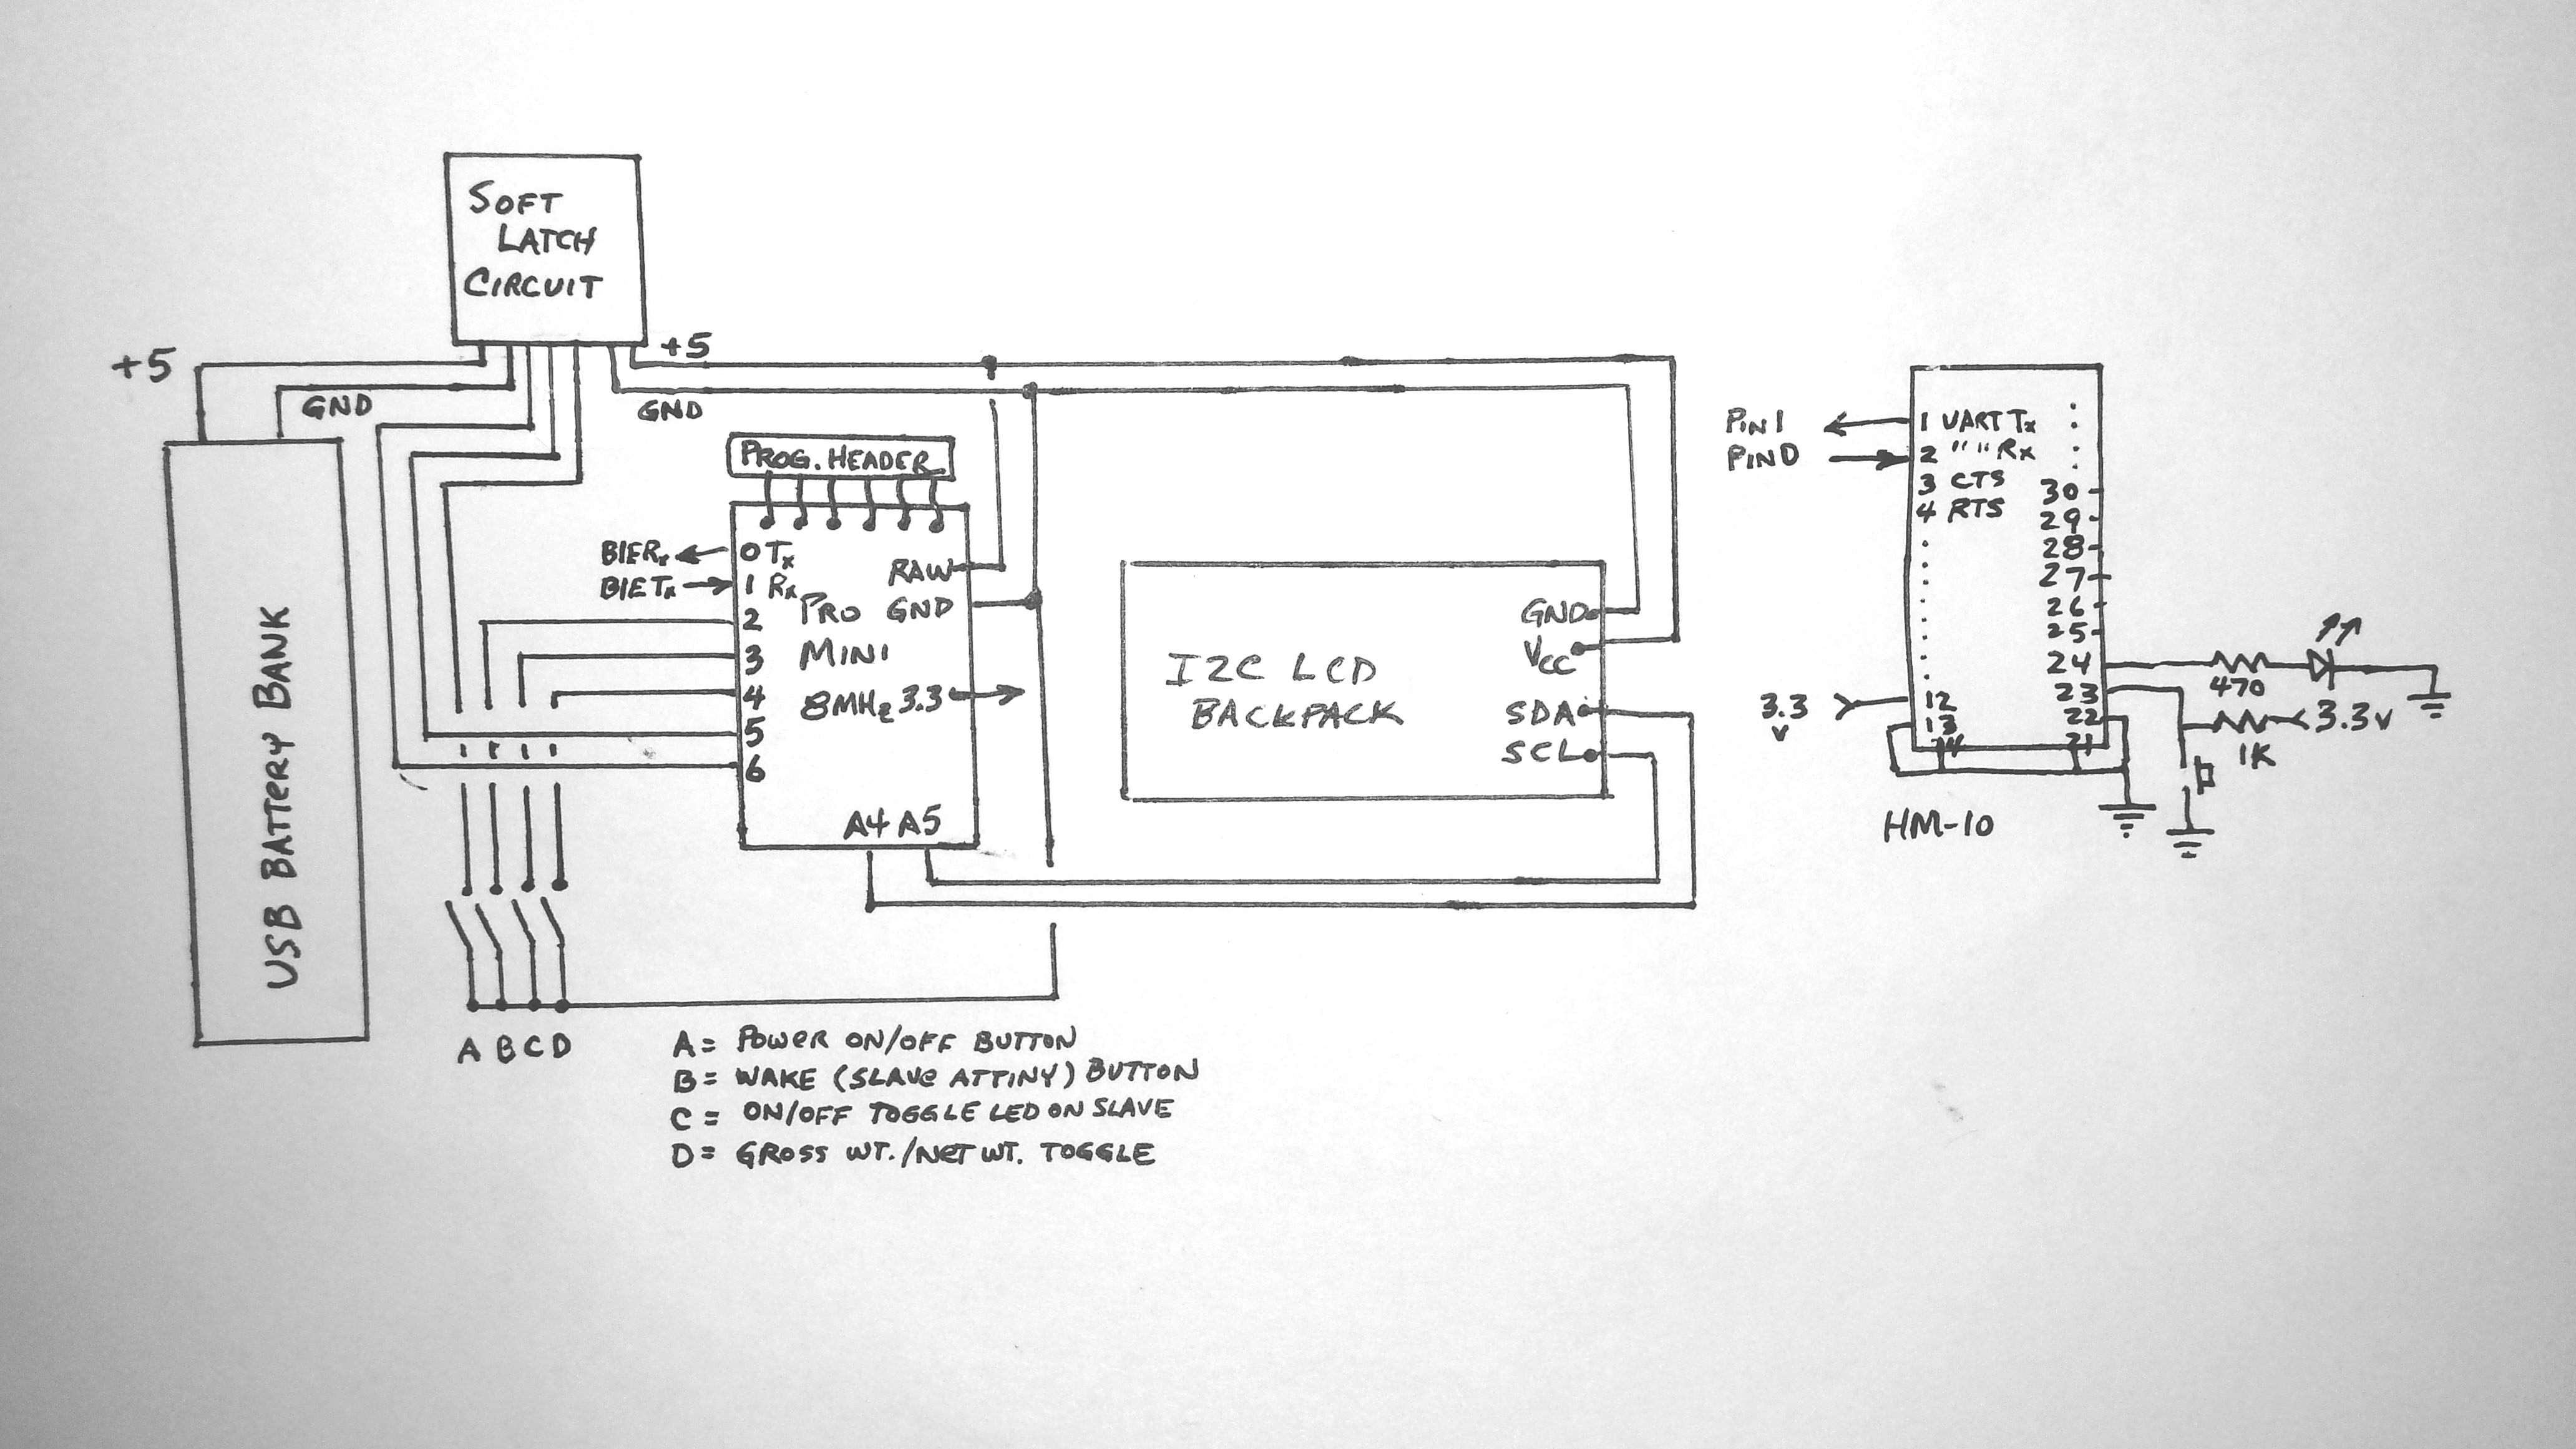 SOFT
LATCH
CIRCUIT
+5
GND
+5
GND
USB BATTERY BANK
PROG. HEADER
BlERx
BlETx
0 Tx
1 Rx
2
3
4
5
6
PRO
MINI
8MHz 3.3
RAW
GND
A4 A5
I2C LCD
BACKPACK
GND
VCC
SDA
SCL
A B C D
A= POWER ON/OFF BUTTON
B= WAKE (SLAVE ATTINY) BUTTON
C= ON/OFF TOGGLE LED ON SLAVE
D= GROSS WT./NET WT. TOGGLE
PIN1
PIN0
1 UART Tx
2 " " Rx
3 CTS
4 RTS
12
13
14
30
29
28
27
26
25
24
23
22
21
3.3
v
470
3.3v
1K
HM-10